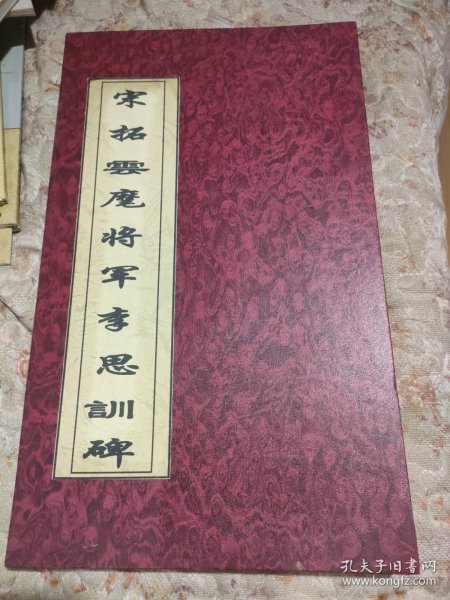 宋拓雲麾将軍李思訓碑
孔夫子旧书网
www.kongfz.com